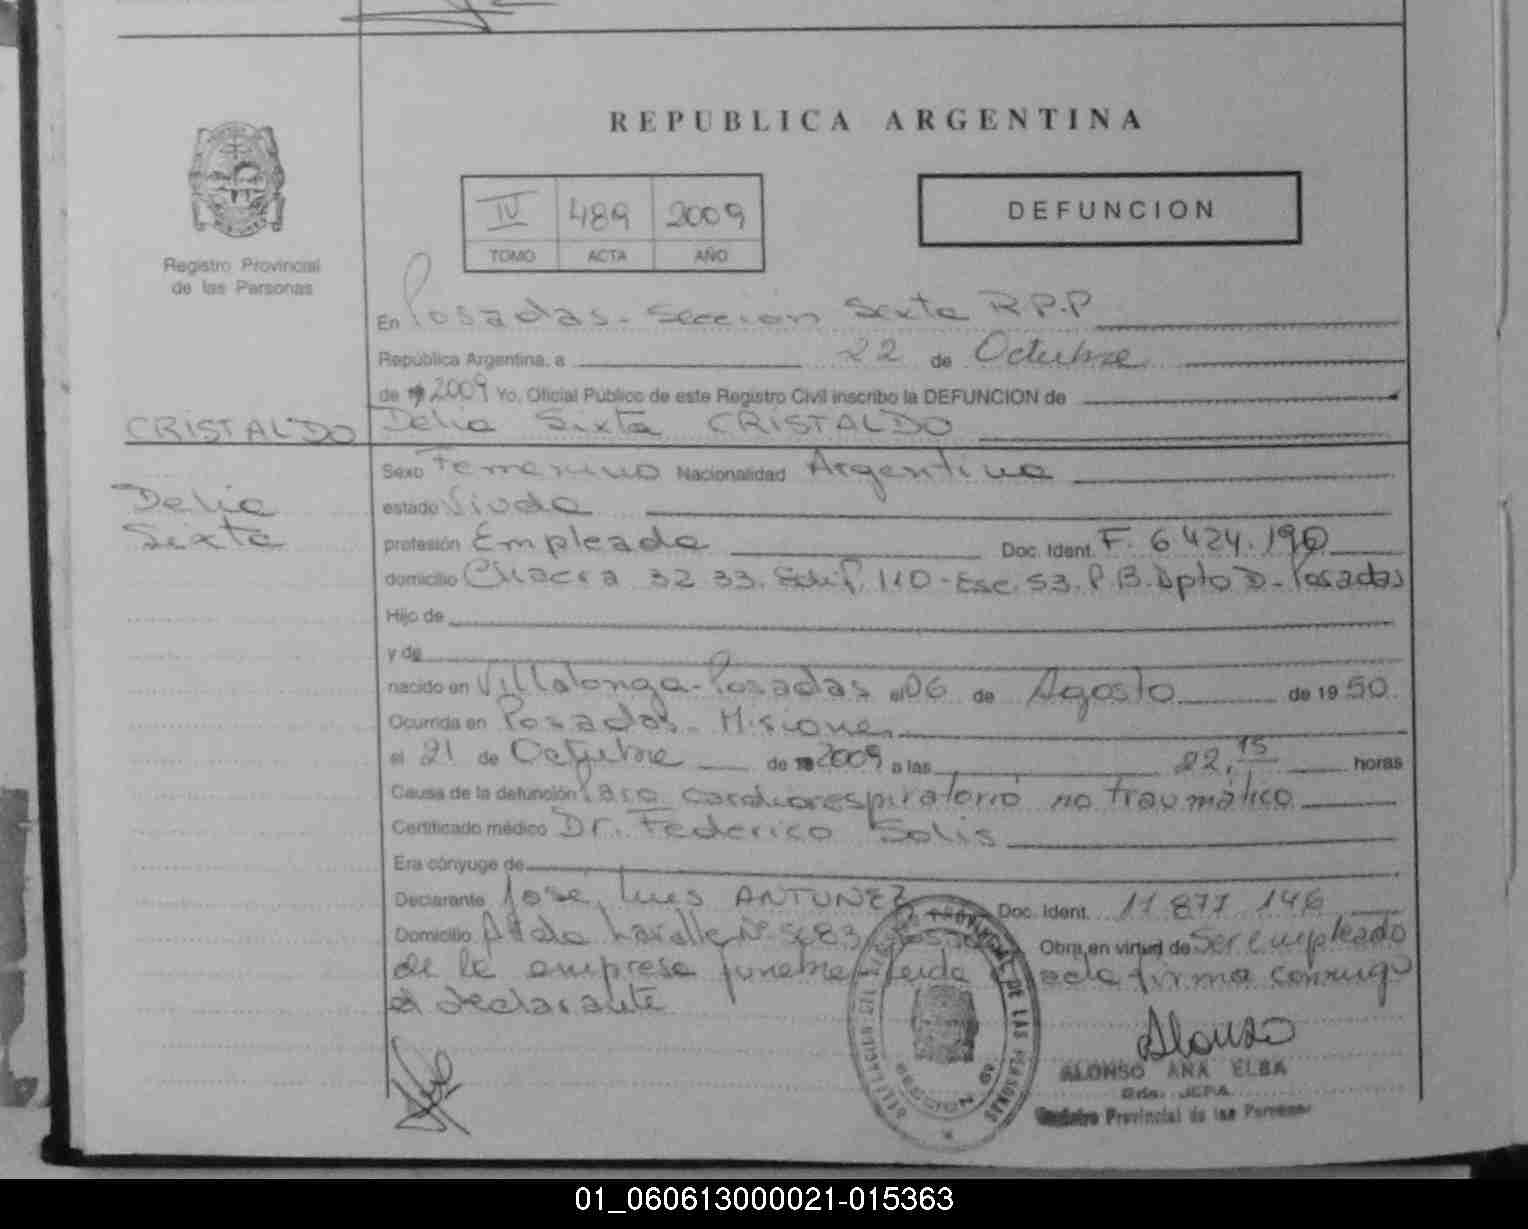 REPUBLICA ARGENTINA
IV 489 2009
TOMO ACTA AÑO
DEFUNCION
Registro Provincial
de las Personas
En Posadas - Sección Sexta R.P.P
República Argentina, a 22 de Octubre
de 2009 Yo, Oficial Público de este Registro Civil inscribo la DEFUNCION de
CRISTALDO Delia Sixta CRISTALDO
Delia
Sixta
Sexo Femenino Nacionalidad Argentina
estado Viuda
profesión Empleada Doc. Ident. F. 6424.190
domicilio Chacra 32 33. Edif. 110 - Esc. 53. P.B. Dpto D - Posadas
Hijo de
y de
nacido en Villalonga - Posadas el 06 de Agosto de 1950
Ocurrida en Posadas - Misiones
el 21 de Octubre de 2009 a las 22,15 horas
Causa de la defunción Paro cardiorespiratorio no traumático
Certificado médico Dr. Federico Solis
Era cónyuge de
Declarante Jose Luis ANTUNEZ Doc. Ident. 11.877.146
Domicilio Lavalle Nº 5683 Obra en virtud de Ser empleado
de la empresa funebre leida acta firma conmigo
el declarante
Alonso
ALONSO ANA ELBA
Registro Provincial de las Personas
DELEGACION DEL REGISTRO PROVINCIAL DE LAS PERSONAS
SECCION 6ª
01_060613000021-015363